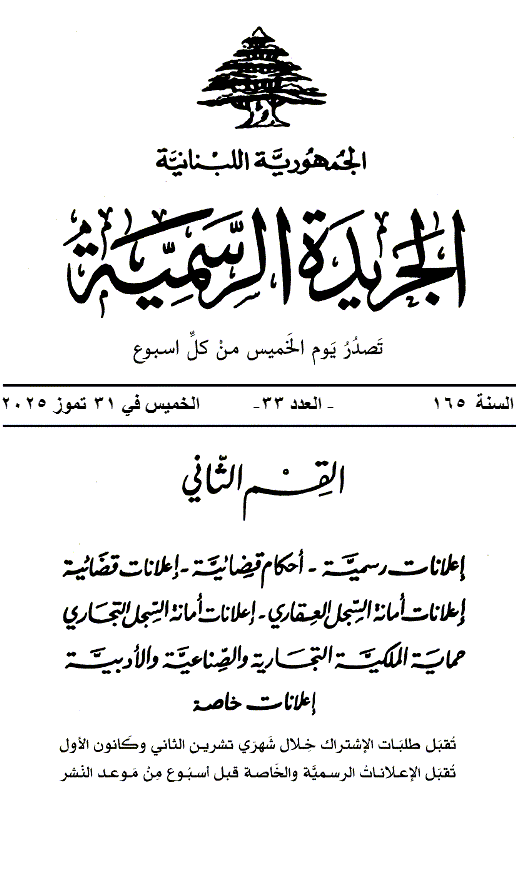 الجُمهُوريَّة اللبْنانيَّة
الجَريدَة الرسَّمِيَّة
تَصدُرُ يَوم الخَميس منْ كلِّ اسبوع
السنة ١٦٥ - العدد ٣٣- الخميس في ٣١ تموز ٢٠٢٥
القِسْم الثّاني
إعلانات رسميَّة - أحكام قضائيَّة - إعلانات قضائية
إعلانات أمانة السِّجل العقاري - إعلانات أمانة السِّجل التجاري
حماية الملكيَّة التجارية والصِّناعيَّة والأدبيَّة
إعلانات خاصة
تُقبَل طلبَات الإشتراك خِلال شَهرَي تشرين الثاني وكَانون الأول
تُقبَل الإعلاناتُ الرسميَّة والخَاصة قبل أسبُوع مِنْ مَوعد النَشر